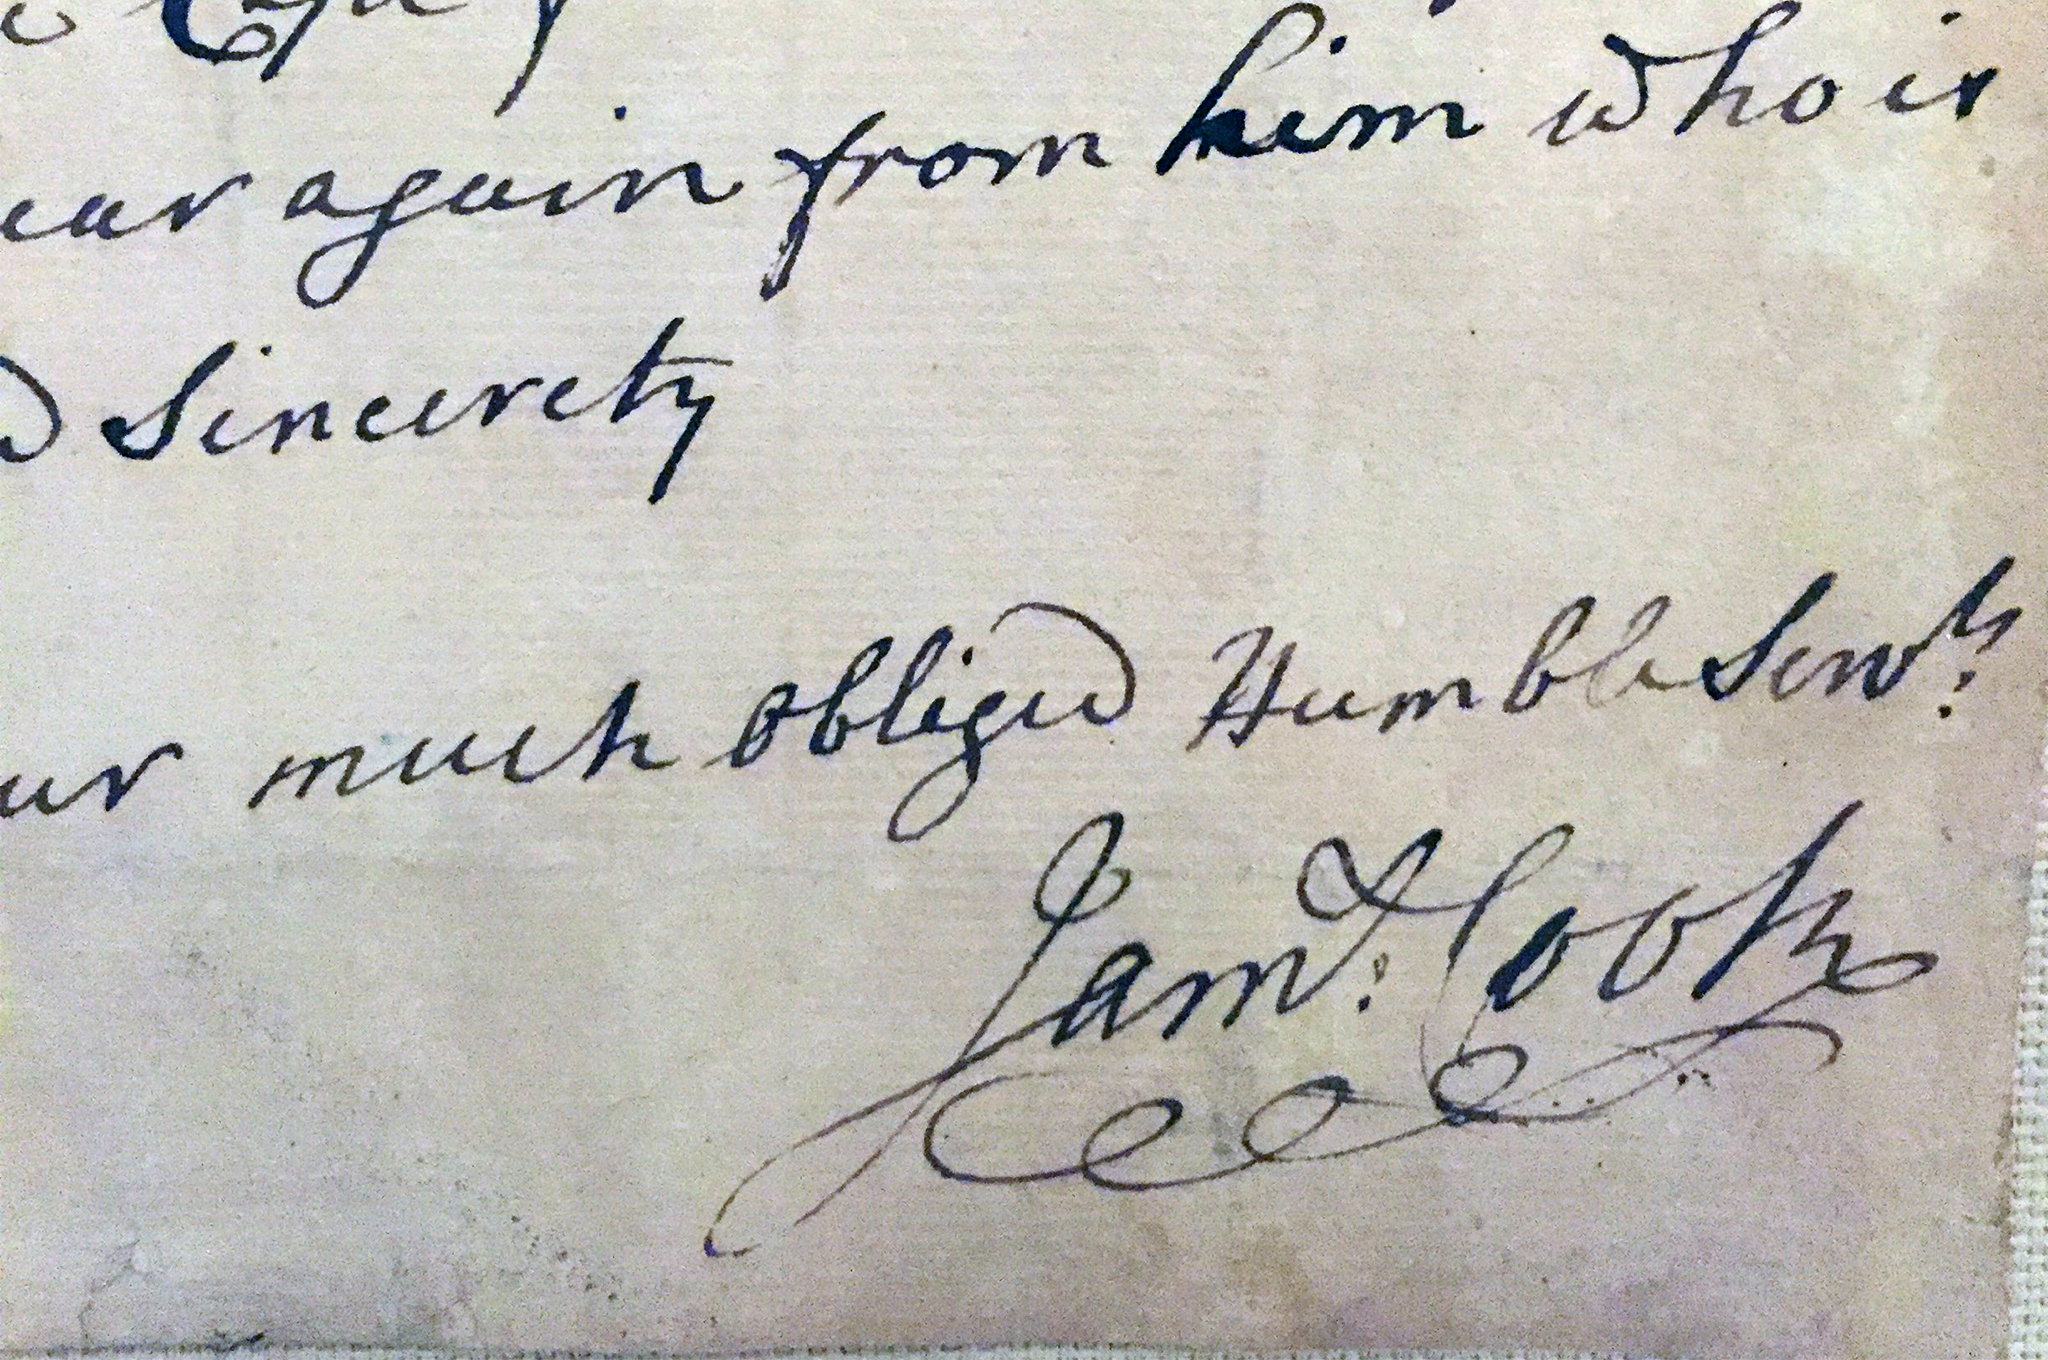 ear again from him who is
d Sincerety
ur much obliged Humble Servt.
Jams. Cook